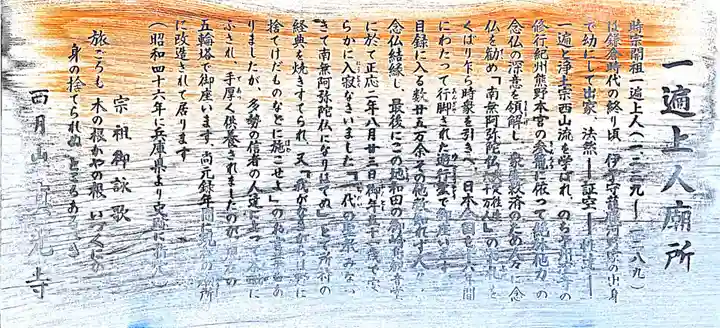 一遍上人廟所
時宗開祖一遍上人(一二三九―一二八九)
は鎌倉時代の終り頃、伊予守 河野 の出身
で幼にして出家、法然―証空―
一遍と浄土宗西山流を学ばれ、のち
修行紀州熊野本宮の参籠に依って 他力の
念仏の深意を領解し、衆生救済のため 念
仏を勧め「南無阿弥陀仏 」の
くばり乍ら時衆を引きへ、日本全国を十六年間
にわたって行脚された遊行 で御座います
目録に入る数廿五万余その他 れず
念仏結縁し、最後にこの地和田の岬 観音堂
に於て正応二年八月廿三日御年五十一歳で安
らかに入寂なさいました「一代の聖教みな
きて南無阿弥陀仏になりはてぬ」とて所持の
経典を焼きすてられ、又「我がなきがらは野に
捨てけだものなどに施こせよ」の
りましたが、多勢の信者の人達に
ふされ、手厚く供養されましたのが
五輪塔で御座います、尚元録年間に 廟所
に改造されて居ります
(昭和四十六年に兵庫県より史蹟に
宗祖御詠歌
旅ころも 木の根かやの根 いづくにか
身の捨てられぬ ところあるべき
西月山 真光寺